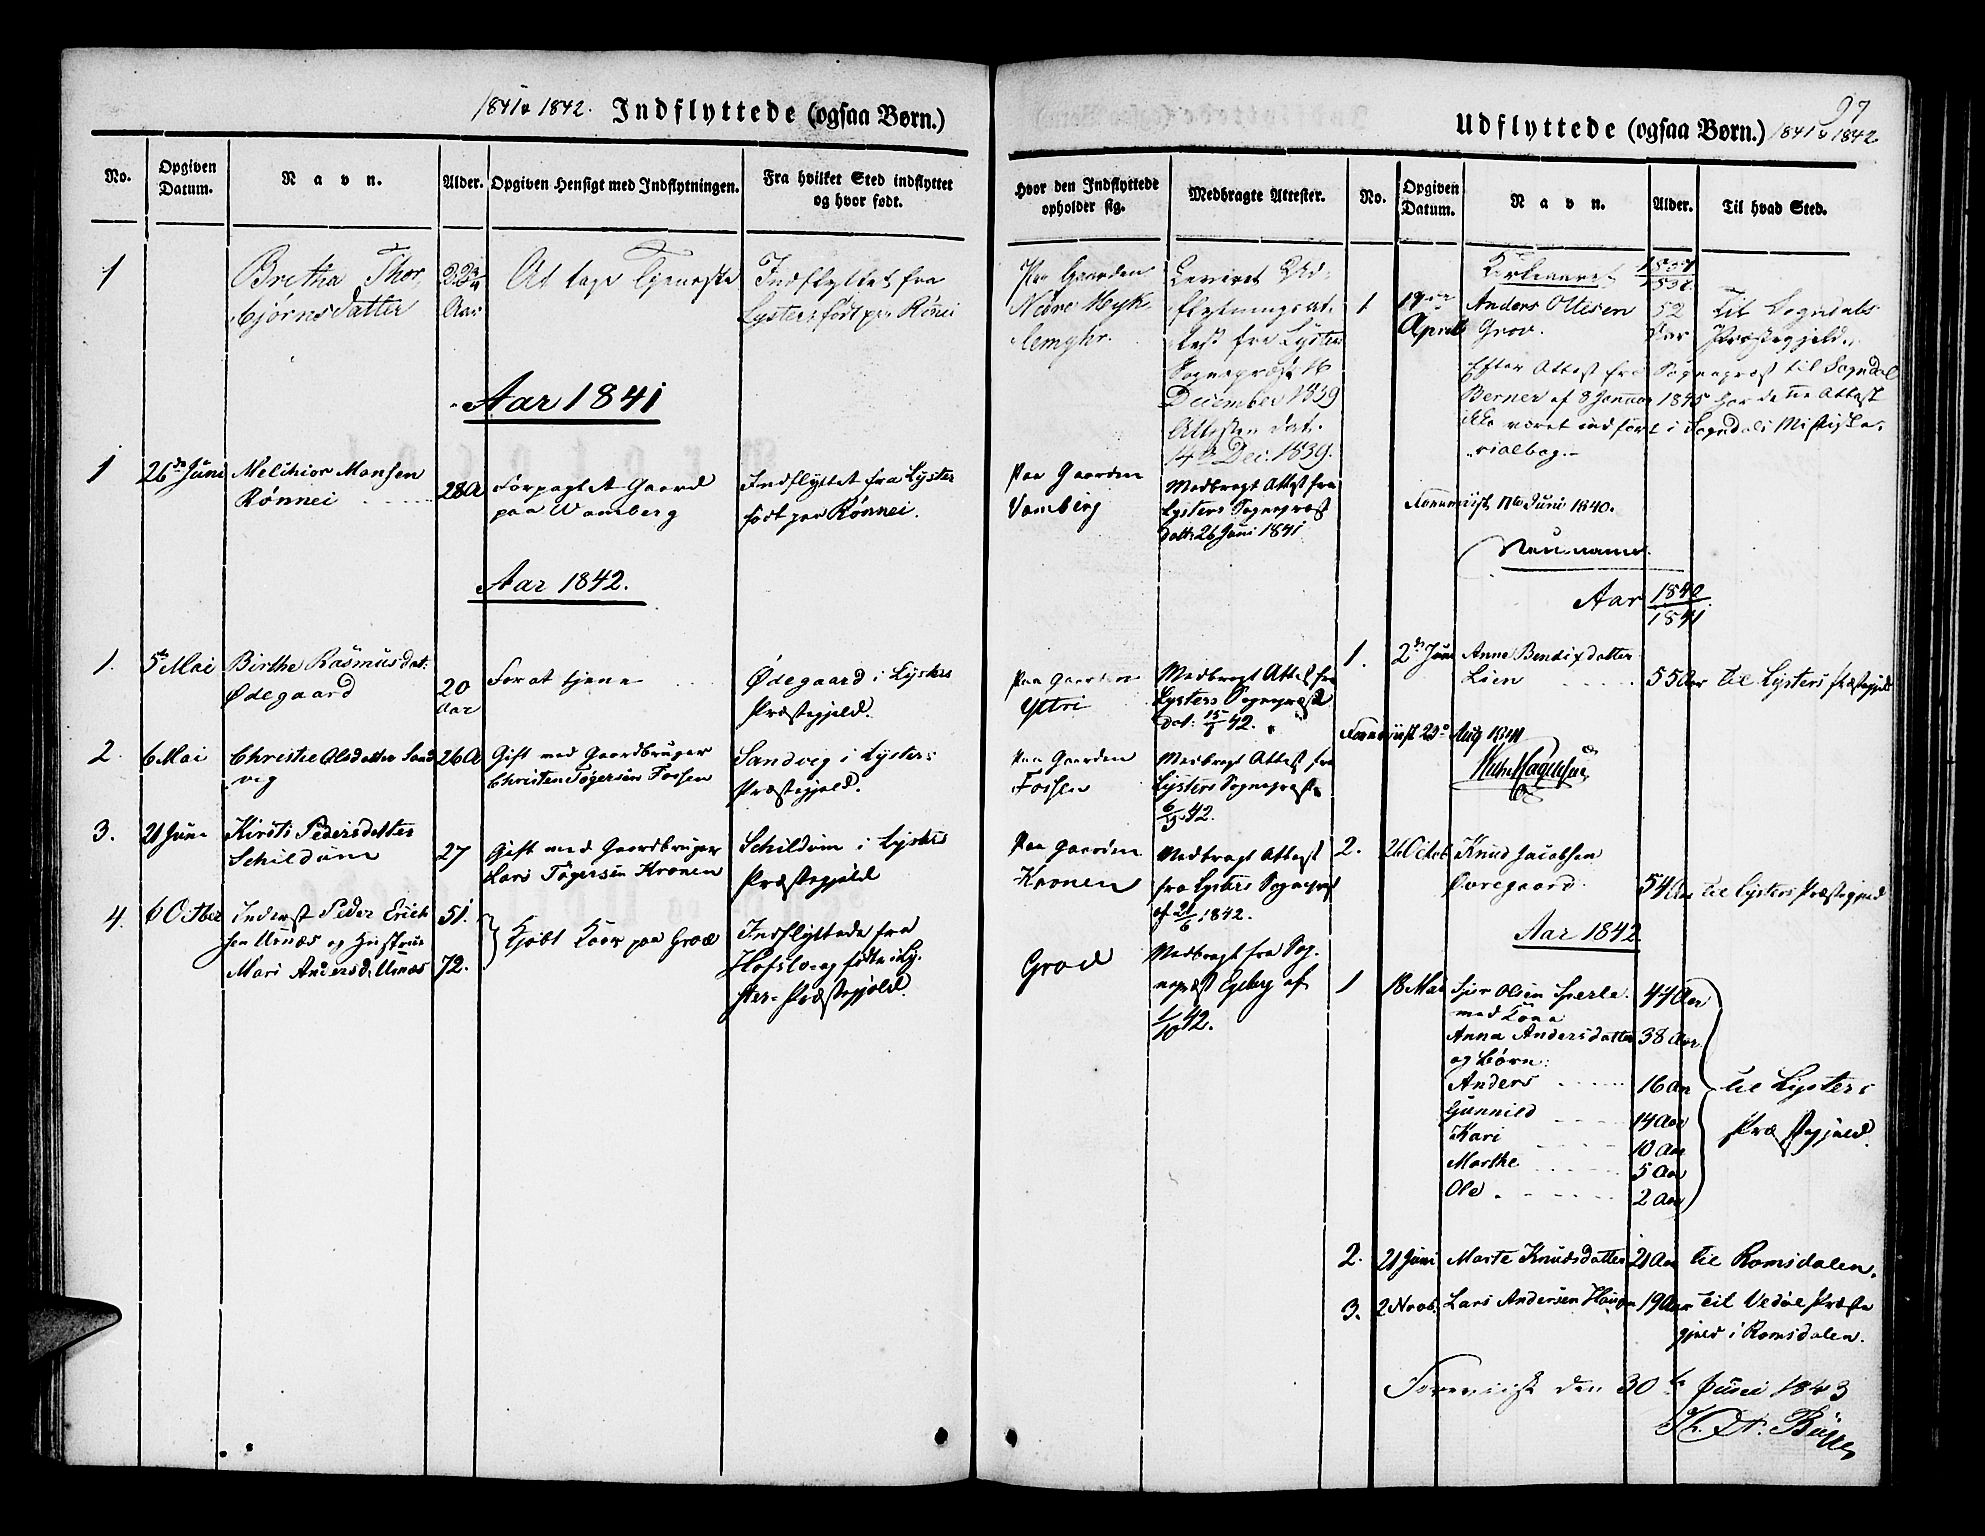 1841 & 1842. Indflyttede (ogsaa Børn.)
No. Opgiven Datum. Navn. Alder. Opgiven Hensigt med Indflytningen. Fra hvilket Sted indflyttet og hvor født.
1 Bretha Thor-
bjørnsdatter Aar
At tage Tjeneste
Indflyttet fra
Lyster født paa Rønei
Aar 1841
1 26de Juni Melchior Monsen
Rønnei 28 A
Forpagtet Gaard
paa Vamberg
Indflyttet fra Lyster
født paa Rønnei.
Aar 1842.
1. 5te Mai Birthe Rasmusdat:
Ødegaard 20
Aar
For at tjene
Ødegaard i Lysters
Præstegjeld.
2. 6 Mai Christie Olsdatter Sand
vig 26 A
Gift med Gaardbruger
Christen Tøgersen Fossen
Sandvig i Lysters
Præstegjeld.
3. 21 Juni Kirsti Pedersdatter
Schildum 27
Gift med Gaardbruger
Lars Tøgersen Kronen
Schildum i Lysters
Præstegjeld
4. 6 Octber Inderst Peder Erich
sen Urnæs og Hustrue
Mari Andersd. Urnæs
51.
72.
Kjøbt Kaar paa Groe
Indflyttede fra
Hafslo og fødte i Ly-
ster Præstegjeld.
97
Udflyttede (ogsaa Børn.) 1841 & 1842
Hvor den Indflyttede opholder sig. Medbragte Attester. No. Opgiven Datum. Navn. Alder. Til hvad Sted.
Paa Gaarden
Nedre Myk-
lemyhr.
Leveret Ud-
flytningsat-
test fra Lyster
Sognepræst
December 1839
Attesten dat.
14de Dec. 1839.
Paa Gaarden
Vamberg
Medbragt Attest fra
Lysters Sognepræst
dat: 26 Juni 1841
Paa Gaarden
Yttri
Medbragt Attest fra
Lysters Sognepræst
dat: 42.
Paa Gaarden
Fossen
Medbragt Attest fra
Lysters Sognepræst
6/5 42.
Paa Gaarden
Kronen
Medbragt Attest
fra Lysters Sognepræst
af 21/6 1842.
Groe
Medbragt fra Sog-
nepræst af
1/10 42.
Kirkeaaret
1 19de
April Anders Ottesen
Grov. 52
Aar
Til Sogndals
Præstegjeld.
Efter Attest fra Sognepræst til Sogndal
Berner af 8 Januar 1845 har denne Attest
ikke været indført i Sogndals Ministe-
rialbog.
17de Juni 1840.
Neumann.
Aar 1840
1841
1. 2de Juni Anne Bendixdatter
Lien 55 Aar til Lysters Præstegjeld
Aug 1841
2. 26 Octob Knud Jacobsen
Øvregaard. 54 Aar til Lysters Præstegjeld
Aar 1842
1 18 Mai Sjur Olsen Sperle 44 Aar
med Kone
Anna Andersdatter 38 Aar
og Børn:
Anders 16 Aar
Gunnild 14 Aar
Kari 10 Aar
Marthe 5 Aar
Ole 2 Aar
til Lysters
Præstegjeld.
2. 21 Juni Marte Knudsdatter 21 Aar til Romsdalen.
3. 2 Novb. Lars Andersen Haugen 19 Aar til Vedøe Præste
gjeld i Romsdalen.
Foreviist den 30te Juni 1843